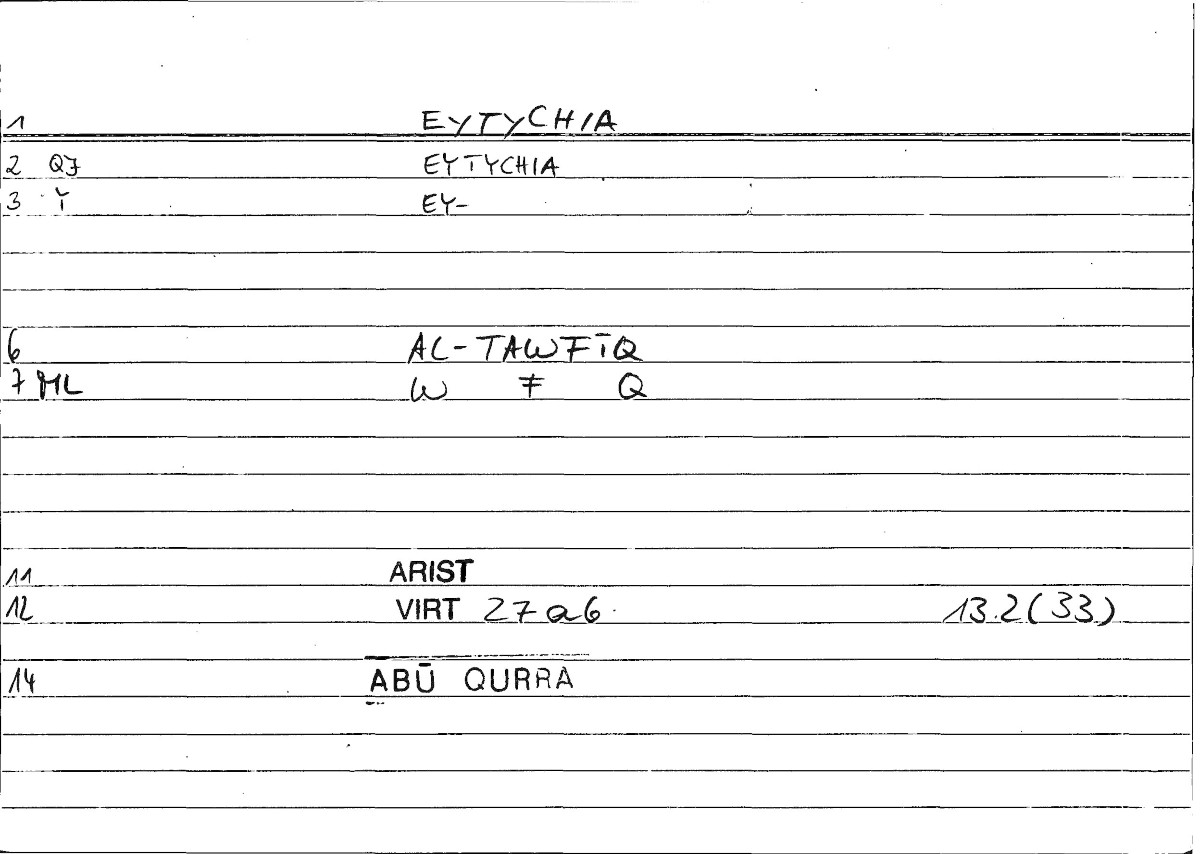 1 EYTYCHIA
2 QF EYTYCHIA
3 Y EY-
6 AL-TAWFĪQ
7 ML W F Q
11 ARIST
12 VIRT 27a6 13.2(33)
14 ABŪ QURRA